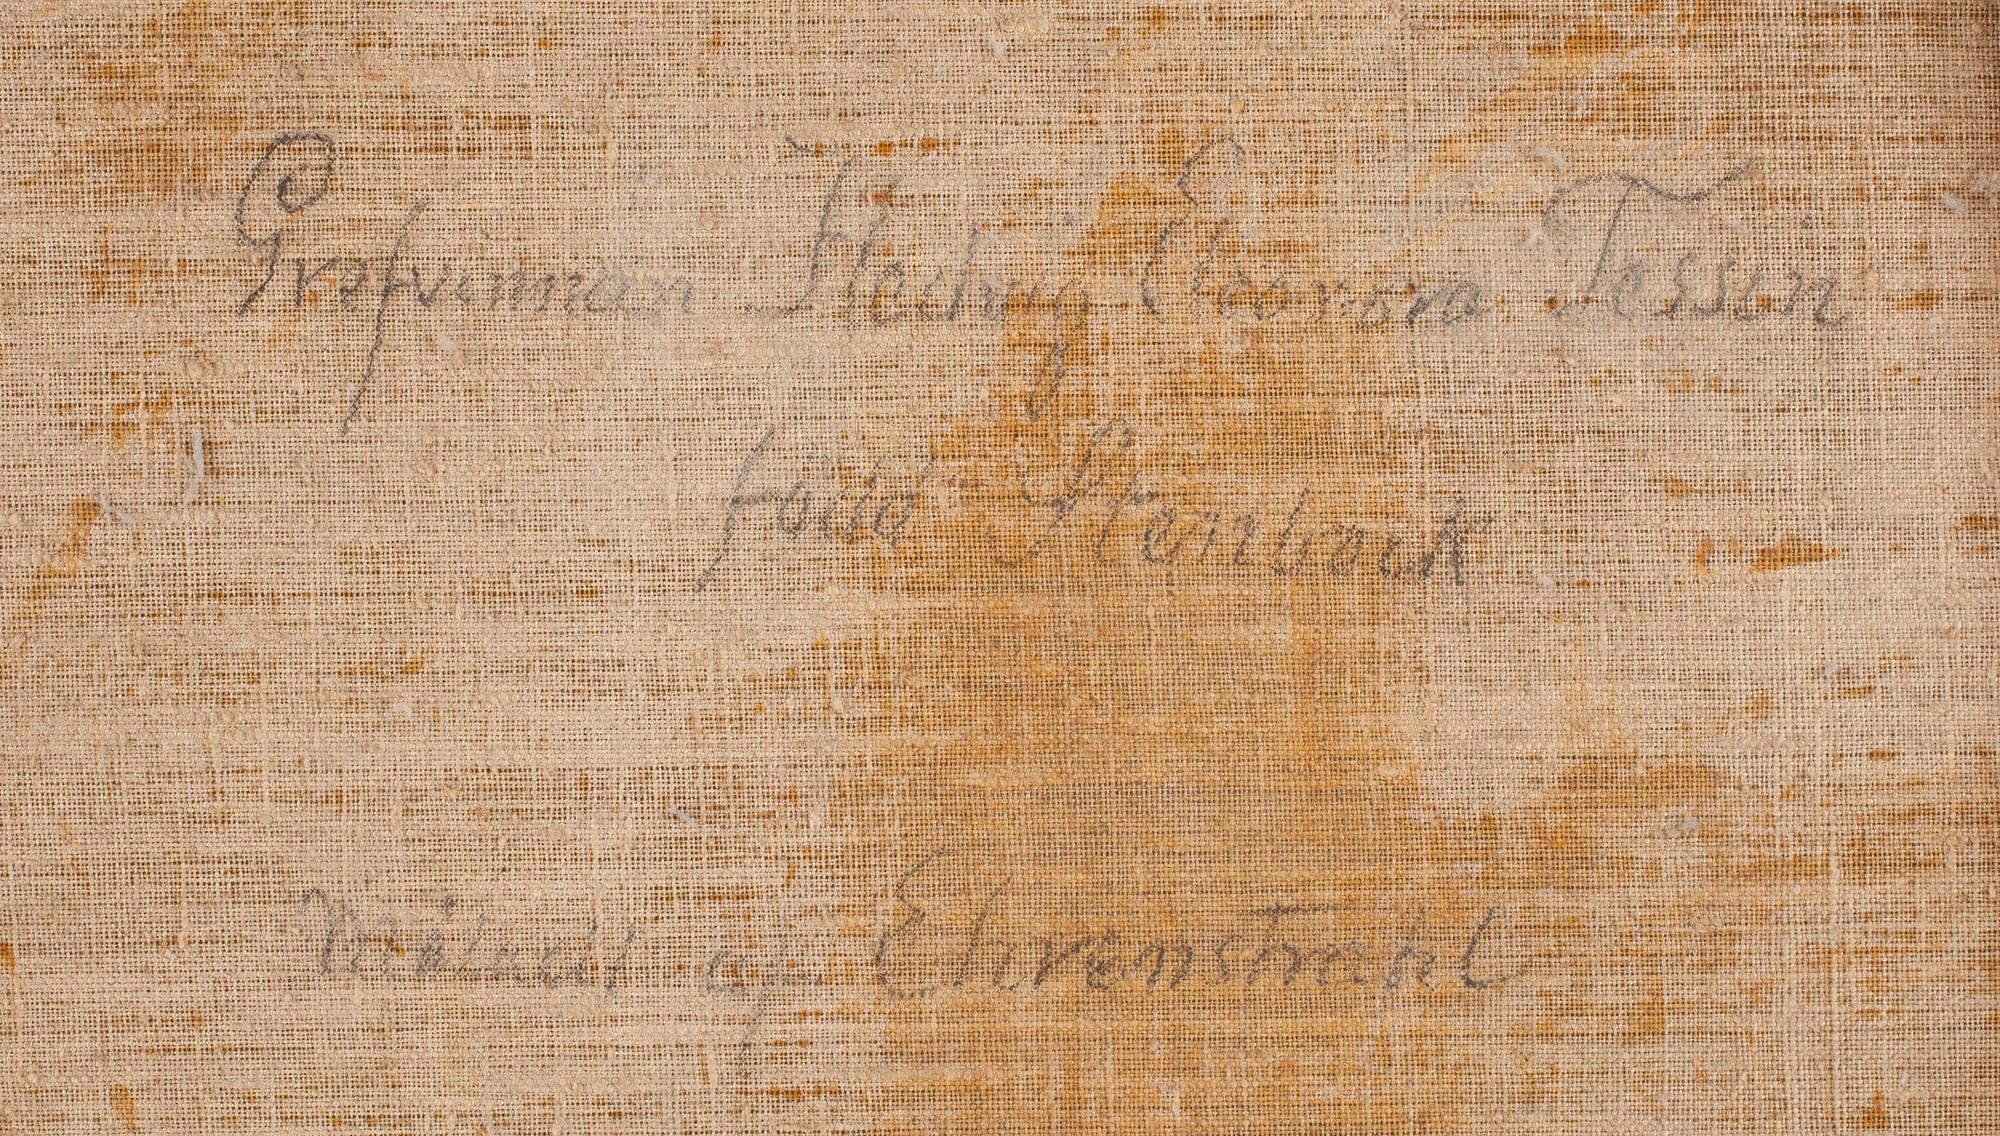 Grefvinnan Hedvig Eleonora Tessin
född Stenbock
Måladt af Ehrenstrahl